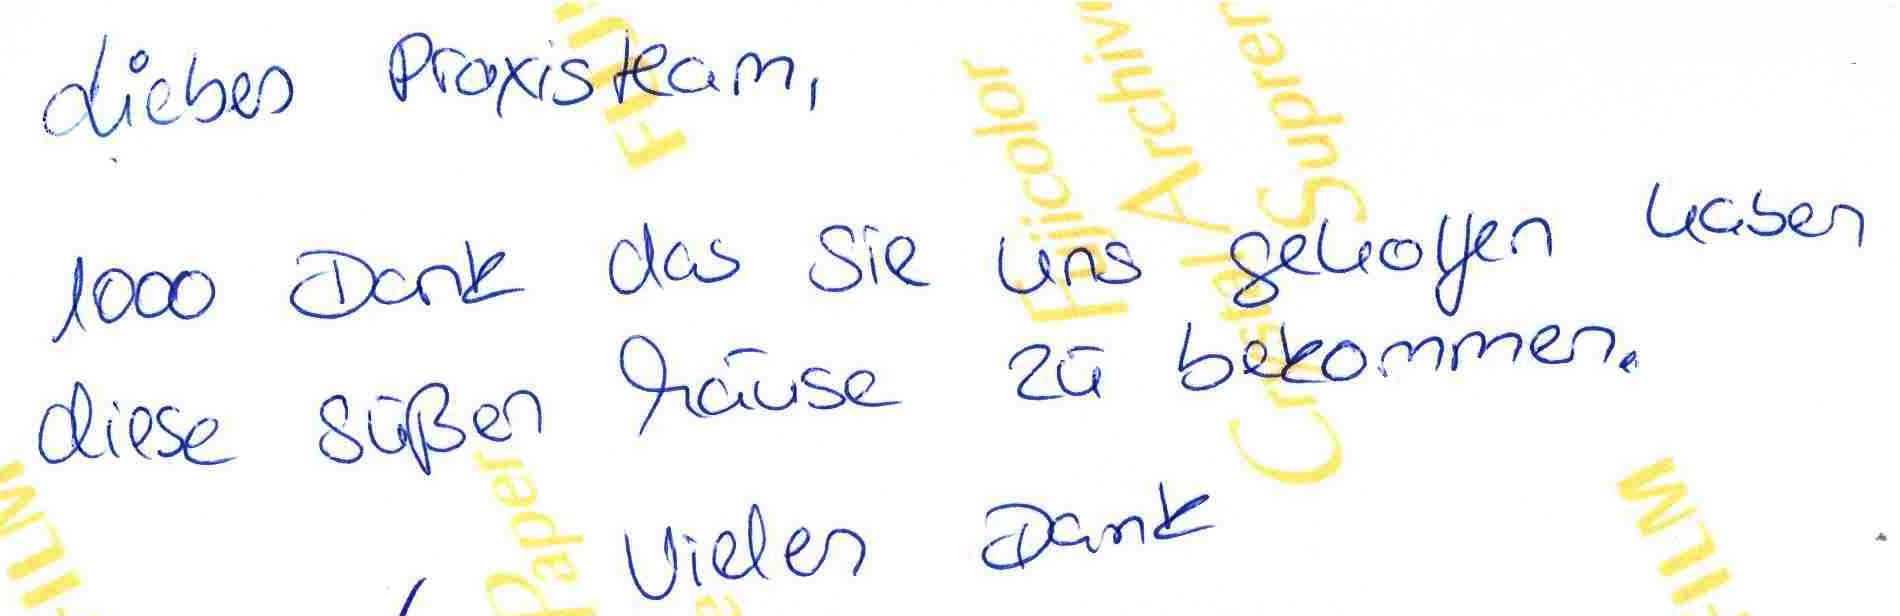 Liebes Praxisteam,
1000 Dank das Sie uns geholfen haben
diese süßen Mäuse zu bekommen.
Vielen Dank
Fujicolor
Crystal Archiv
Paper Suprem
FILM